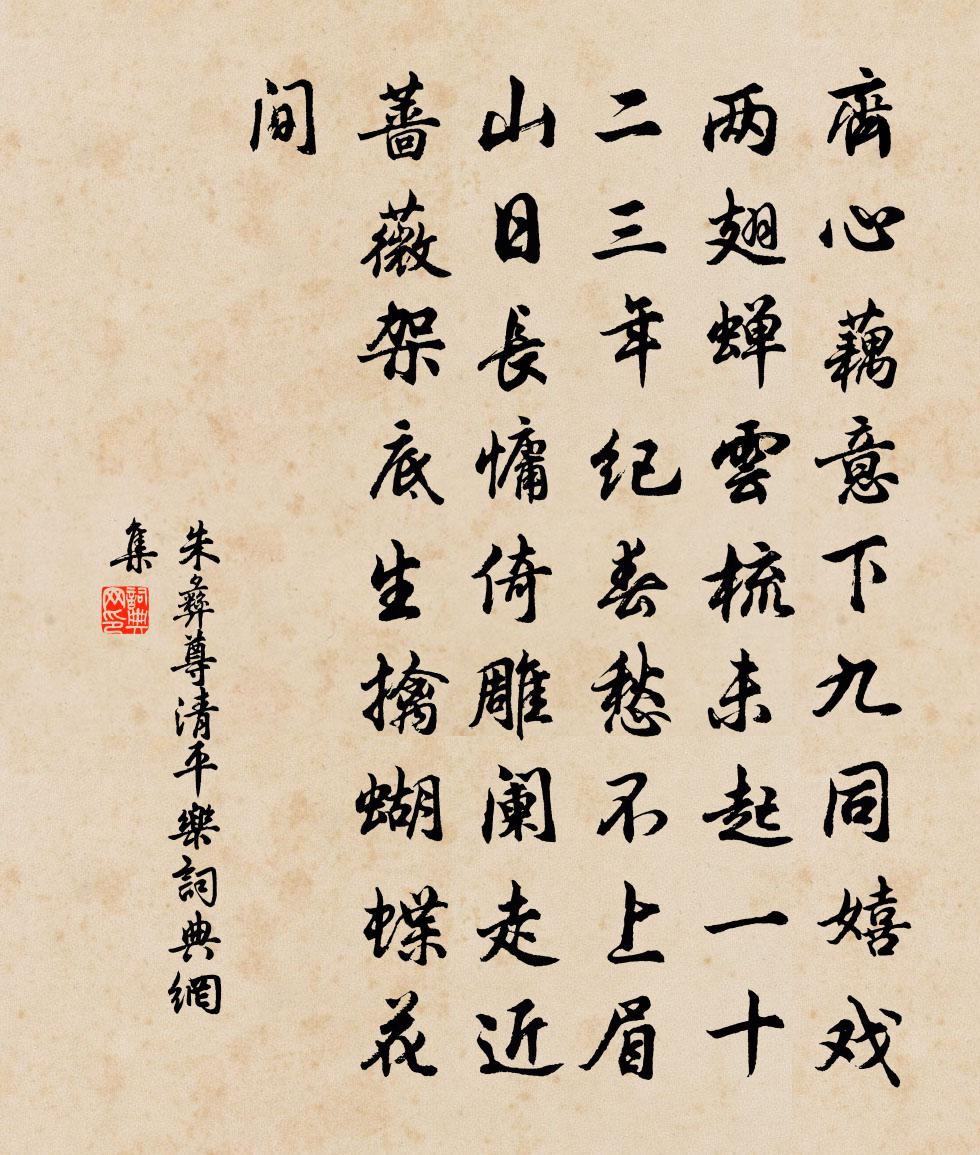 齊心藕意下九同嬉戏
两翅蝉雲梳未起一十
二三年纪春愁不上眉
山日長慵倚雕阑走近
蔷薇架底生擒蝴蝶花
间
朱彝尊清平樂詞典網
集
詞典网印